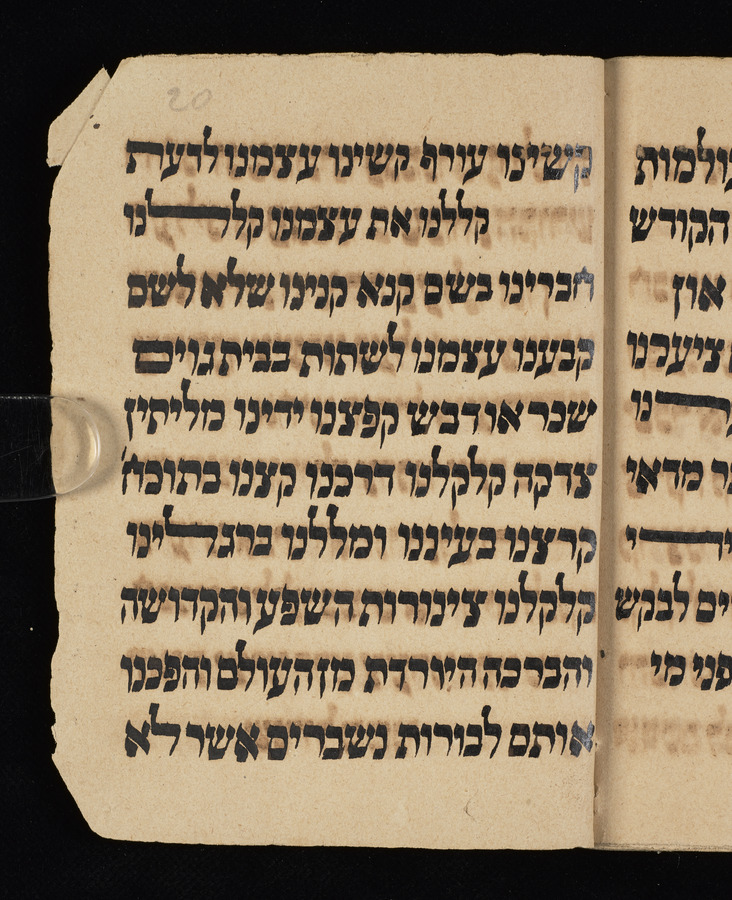 20
קשינו עורף קשינו עצמנו לדעת
קללנו את עצמנו קללנו
חברינו בשם קנא קנינו שלא לשם
קבענו עצמנו לשתות בבית גוים
שכר או דבש קפצנו ידינו מליתין
צדקה קלקלנו דרכנו קצנו בתוכח'
קרצנו בעיננו ומללנו ברגלינו
קלקלנו צינורות השפע והקדושה
והברכה היורדת מן העולם והפכנו
אותם לבורות נשברים אשר לא
עולמות
הקודש
און
ציערנו
נו
מדאי
י
לבקש
פני מי